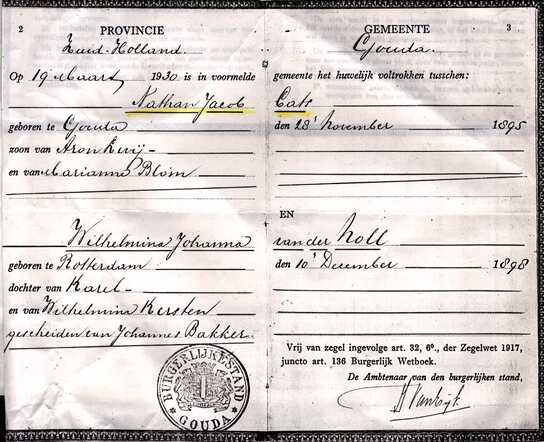 2 PROVINCIE
Zuid-Holland.
Op 19 Maart 1930 is in voormelde
Nathan Jacob
geboren te Gouda
zoon van Aron Levij
en van Marianne Blom
Wilhelmina Johanna
geboren te Rotterdam
dochter van Karel
en van Wilhelmina Kersten
gescheiden van Johannes Bakker.
BURGERLIJKE STAND
GOUDA
GEMEENTE 3
Gouda.
gemeente het huwelijk voltrokken tusschen:
Cats
den 28' November 1895
EN
van der Noll
den 10' December 1898
Vrij van zegel ingevolge art. 32, 6º., der Zegelwet 1917,
juncto art. 136 Burgerlijk Wetboek.
De Ambtenaar van den burgerlijken stand,